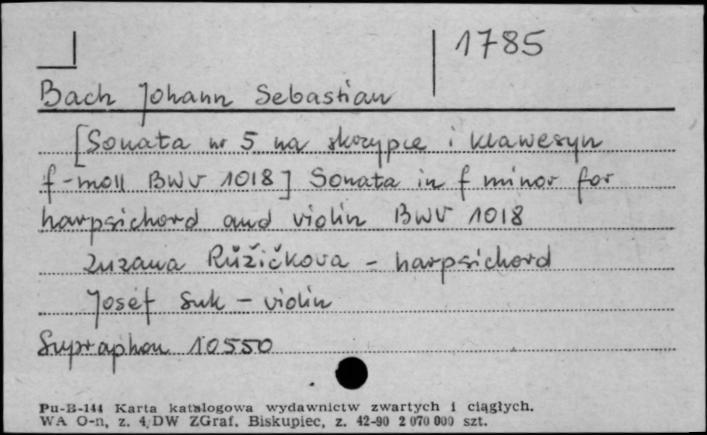 1785
Bach Johann Sebastian
[Sonata nr 5 na skrzypce i klawesyn
f-moll BWV 1018] Sonata in f minor for
harpsichord and violin BWV 1018
Zuzana Růžičkova - harpsichord
Josef Suk - violin
Supraphon 10550
Pu-B-144 Karta katalogowa wydawnictw zwartych i ciągłych.
WA O-n, z. 4/DW ZGraf. Biskupiec, z. 42-90 2 070 000 szt.